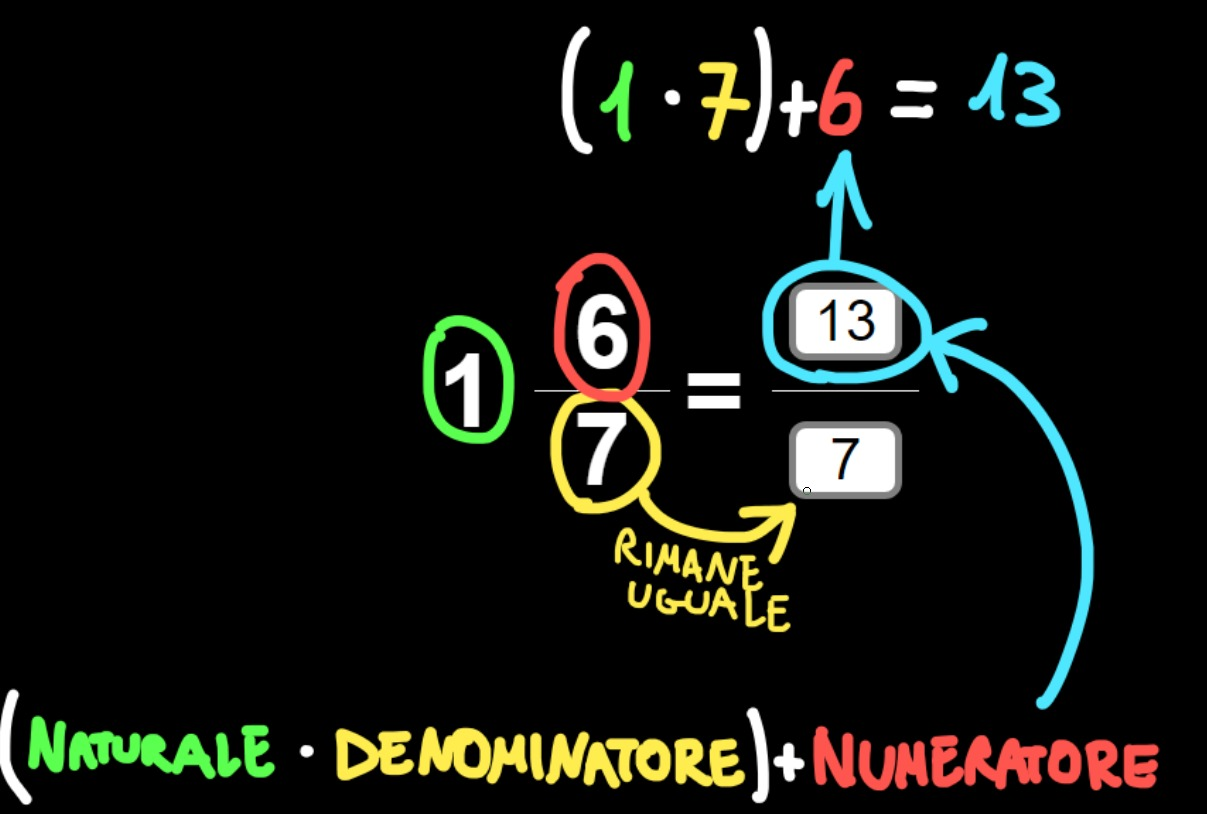 (1 · 7)+6 = 13
1 6/7 = 13/7
RIMANE
UGUALE
(NATURALE · DENOMINATORE)+NUMERATORE